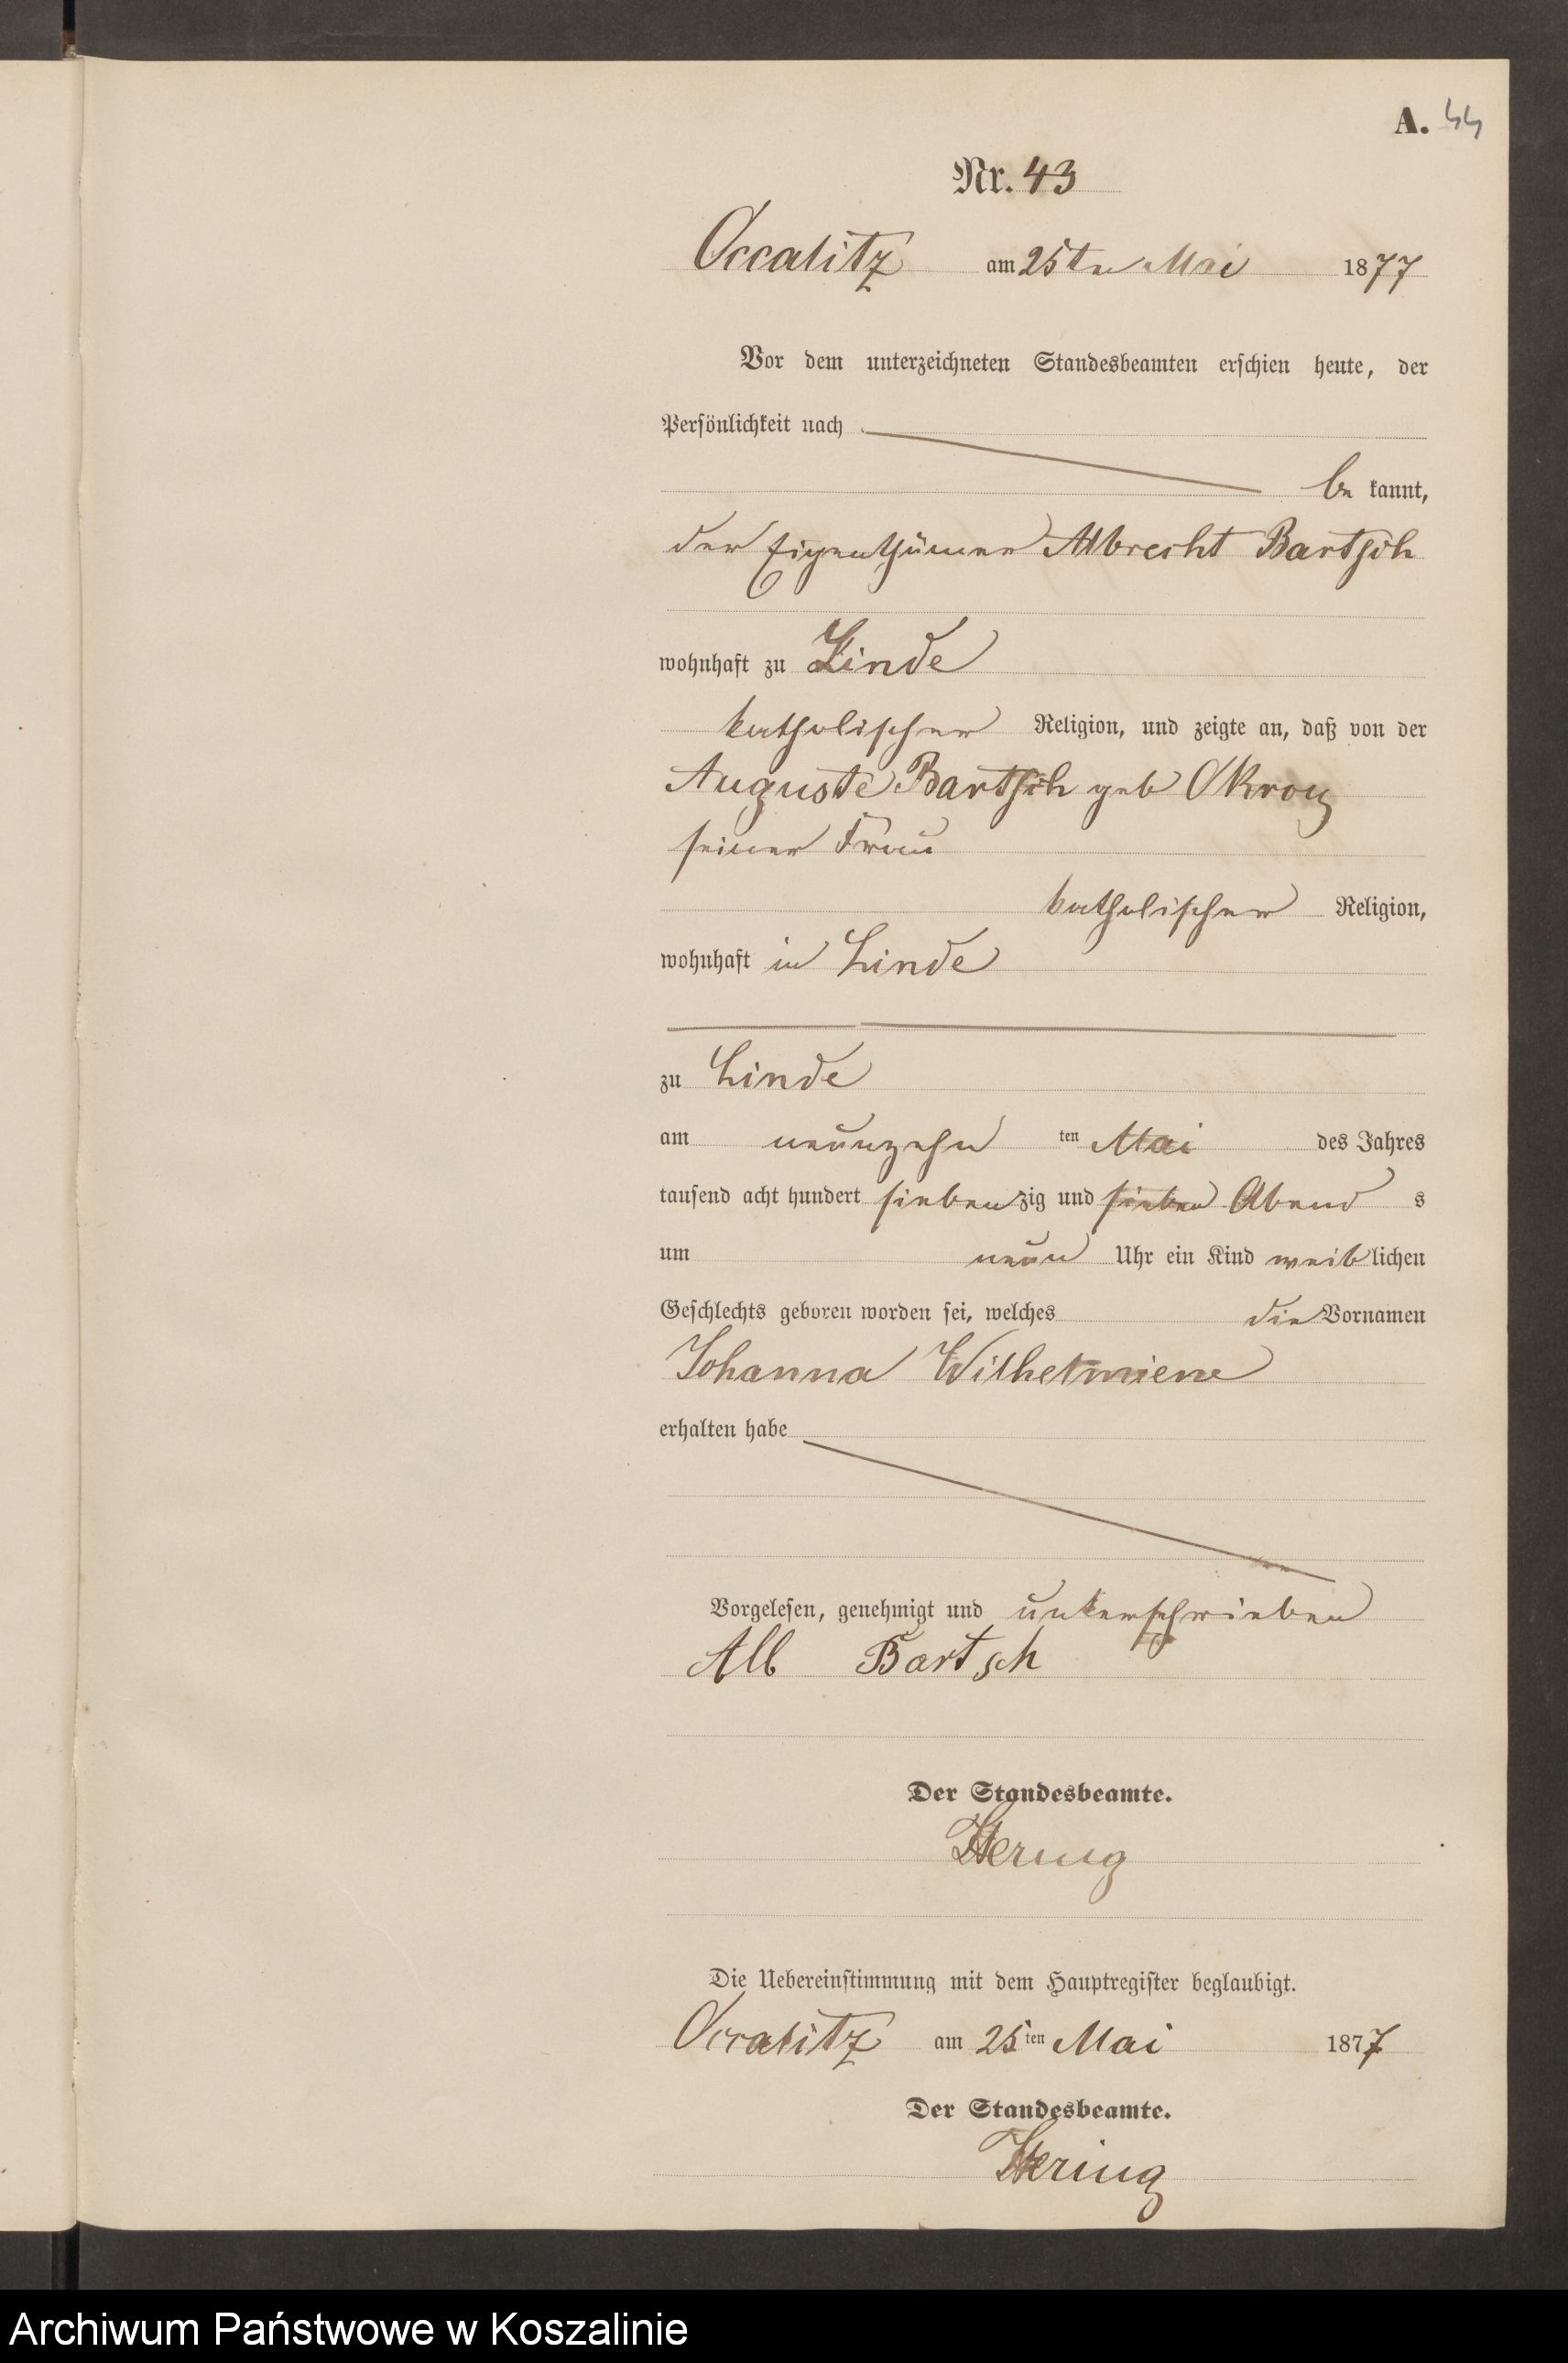 A. 44
Nr. 43
Occalitz am 25ten Mai 1877
Vor dem unterzeichneten Standesbeamten erschien heute, der
Persönlichkeit nach
be kannt,
der Eigenthümer Albrecht Bartsch
wohnhaft zu Linde
katholischer Religion, und zeigte an, daß von der
Auguste Bartsch geb Okroy
seiner Frau
katholischer Religion,
wohnhaft in Linde
zu Linde
am neunzehn ten Mai des Jahres
tausend acht hundert siebenzig und sieben Abend s
um neun Uhr ein Kind weiblichen
Geschlechts geboren worden sei, welches die Vornamen
Johanna Wilhelmiene
erhalten habe
Vorgelesen, genehmigt und unterschrieben
Alb Bartsch
Der Standesbeamte.
Hering
Die Uebereinstimmung mit dem Hauptregister beglaubigt.
Occalitz am 25ten Mai 1877
Der Standesbeamte.
Hering
Archiwum Państwowe w Koszalinie